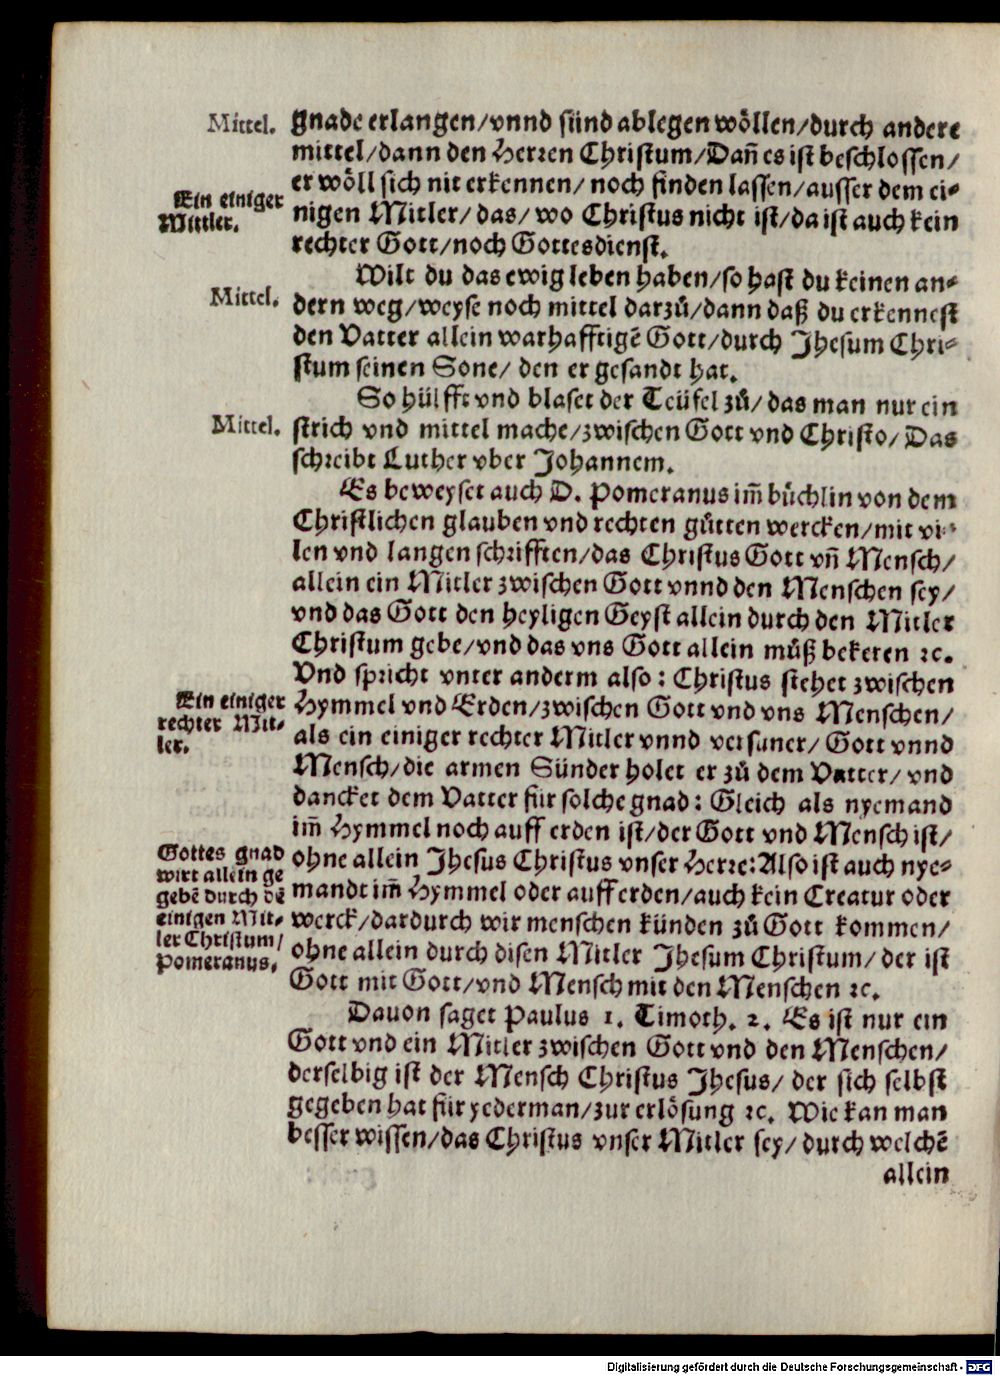 Mittel.
gnade erlangen/vnnd sünd ablegen wöllen/durch andere
mittel/dann den Herren Christum/Dañ es ist beschlossen/
er wöll sich nit erkennen/ noch finden lassen/ausser dem ei-
Ein einiger
Mittler.
nigen Mitler/ das/ wo Christus nicht ist/da ist auch kein
rechter Gott/noch Gottesdienst.
Wilt du das ewig leben haben/so hast du keinen an-
Mittel.
dern weg/weyse noch mittel darzů/dann daß du erkennest
den Vatter allein warhafftigē Gott/durch Jhesum Chri-
stum seinen Sone/ den er gesandt hat.
So hülfft vnd blaset der Teüfel zů/ das man nur ein
Mittel.
strich vnd mittel mache/zwischen Gott vnd Christo/ Das
schreibt Luther vber Johannem.
Es beweyset auch D. Pomeranus im̃ büchlin von dem
Christlichen glauben vnd rechten gůtten wercken/mit vi-
len vnd langen schrifften/das Christus Gott vñ Mensch/
allein ein Mitler zwischen Gott vnnd den Menschen sey/
vnd das Gott den heyligen Geyst allein durch den Mitler
Christum gebe/vnd das vns Gott allein můß bekeren ꝛc.
Vnd spricht vnter anderm also: Christus stehet zwischen
Ein einiger
rechter Mit-
ler.
Hymmel vnd Erden/zwischen Gott vnd vns Menschen/
als ein einiger rechter Mitler vnnd versuner/ Gott vnnd
Mensch/die armen Sünder holet er zů dem Vatter/ vnd
dancket dem Vatter für solche gnad: Gleich als nyemand
im̃ Hymmel noch auff erden ist/der Gott vnd Mensch ist/
Gottes gnad
wirt allein ge
gebē durch dē
einigen Mit-
ler Christum/
Pomeranus.
ohne allein Jhesus Christus vnser Herre: Also ist auch nye-
mandt im̃ Hymmel oder auff erden/auch kein Creatur oder
werck/dardurch wir menschen künden zů Gott kommen/
ohne allein durch disen Mitler Jhesum Christum/ der ist
Gott mit Gott/vnd Mensch mit den Menschen ꝛc.
Dauon saget Paulus 1. Timoth. 2. Es ist nur ein
Gott vnd ein Mitler zwischen Gott vnd den Menschen/
derselbig ist der Mensch Christus Jhesus/ der sich selbst
gegeben hat für yederman/zur erlösung ꝛc. Wie kan man
besser wissen/das Christus vnser Mitler sey/ durch welchē
allein
Digitalisierung gefördert durch die Deutsche Forschungsgemeinschaft - DFG